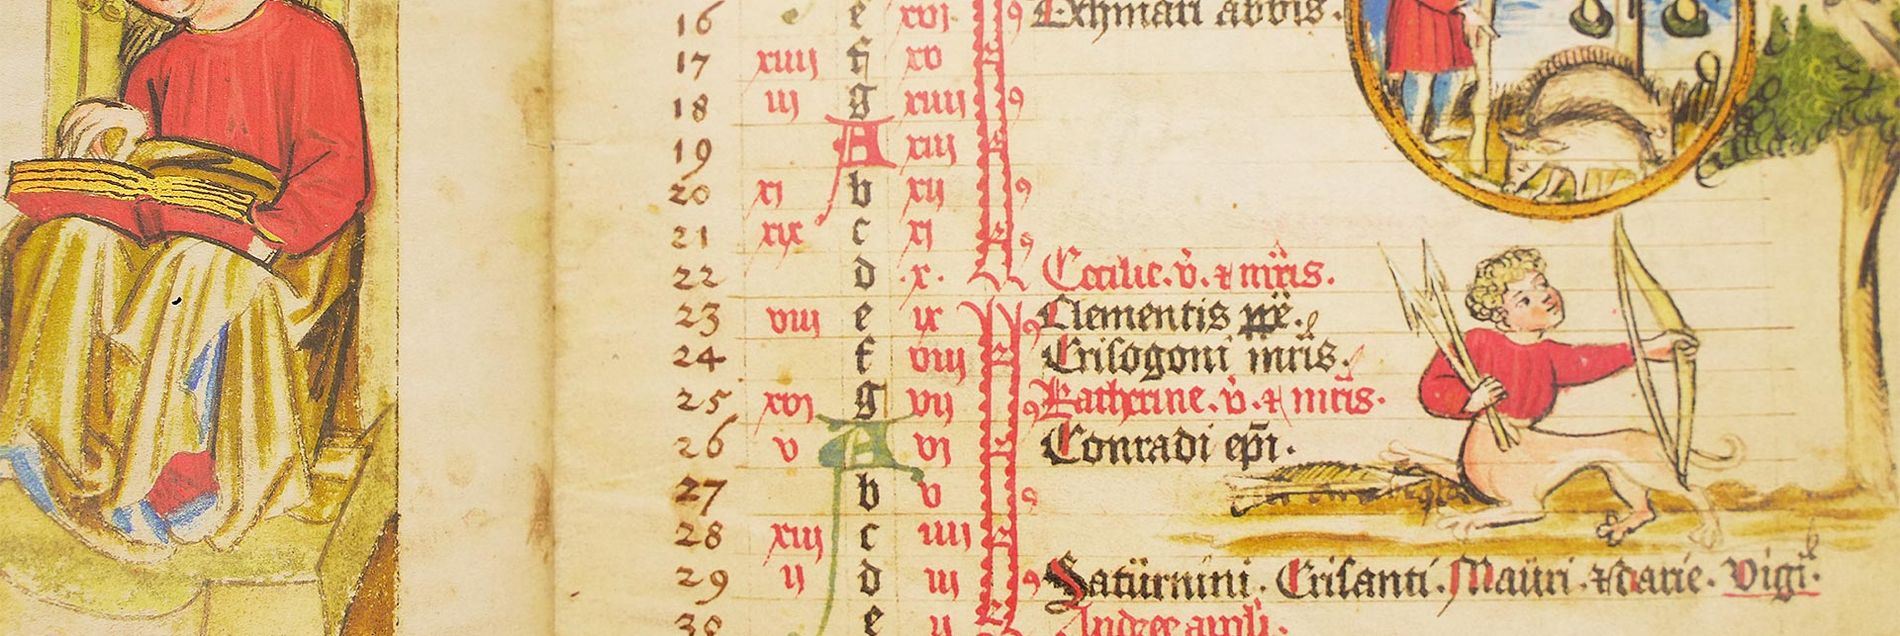 16 e xvj. 9 Othmari abbis.
17 xiiij f xv
18 iij g xiiij 9
19 A xiij
20 xj b xij 9
21 xix c xj 9
22 d .x. Cecilie. v̇. ⁊ mr̃is.
23 viij e ix 9 Clementis pp̃e.
24 f viij Crisogoni mr̃is.
25 xvj g vij 9 Katherine. v̇. ⁊ mr̃is.
26 v A vj Conradi ep̃i.
27 b v 9
28 xiij c iiij
29 ij d iij 9 Saturnini. Crisanti. Mauri. ⁊ Darie. Vigił.
30 e ij Andree apłi.